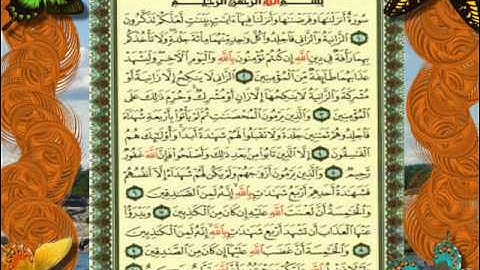 بِسْمِ اللَّهِ الرَّحْمَٰنِ الرَّحِيمِ
سُورَةٌ أَنزَلْنَٰهَا وَفَرَضْنَٰهَا وَأَنزَلْنَا فِيهَآ ءَايَٰتٍۭ بَيِّنَٰتٍ لَّعَلَّكُمْ تَذَكَّرُونَ
١ ٱلزَّانِيَةُ وَٱلزَّانِى فَٱجْلِدُوا۟ كُلَّ وَٰحِدٍ مِّنْهُمَا مِا۟ئَةَ جَلْدَةٍ وَلَا تَأْخُذْكُم
بِهِمَا رَأْفَةٌ فِى دِينِ ٱللَّهِ إِن كُنتُمْ تُؤْمِنُونَ بِٱللَّهِ وَٱلْيَوْمِ ٱلْءَاخِرِ وَلْيَشْهَدْ
عَذَابَهُمَا طَآئِفَةٌ مِّنَ ٱلْمُؤْمِنِينَ ٢ ٱلزَّانِى لَا يَنكِحُ إِلَّا زَانِيَةً أَوْ
مُشْرِكَةً وَٱلزَّانِيَةُ لَا يَنكِحُهَآ إِلَّا زَانٍ أَوْ مُشْرِكٌ وَحُرِّمَ ذَٰلِكَ عَلَى
ٱلْمُؤْمِنِينَ ٣ وَٱلَّذِينَ يَرْمُونَ ٱلْمُحْصَنَٰتِ ثُمَّ لَمْ يَأْتُوا۟ بِأَرْبَعَةِ شُهَدَآءَ
فَٱجْلِدُوهُمْ ثَمَٰنِينَ جَلْدَةً وَلَا تَقْبَلُوا۟ لَهُمْ شَهَٰدَةً أَبَدًا وَأُو۟لَٰٓئِكَ هُمُ
ٱلْفَٰسِقُونَ ٤ إِلَّا ٱلَّذِينَ تَابُوا۟ مِنۢ بَعْدِ ذَٰلِكَ وَأَصْلَحُوا۟ فَإِنَّ ٱللَّهَ غَفُورٌ
رَّحِيمٌ ٥ وَٱلَّذِينَ يَرْمُونَ أَزْوَٰجَهُمْ وَلَمْ يَكُن لَّهُمْ شُهَدَآءُ إِلَّآ أَنفُسُهُمْ
فَشَهَٰدَةُ أَحَدِهِمْ أَرْبَعُ شَهَٰدَٰتٍۭ بِٱللَّهِ إِنَّهُۥ لَمِنَ ٱلصَّٰدِقِينَ ٦
وَٱلْخَٰمِسَةُ أَنَّ لَعْنَتَ ٱللَّهِ عَلَيْهِ إِن كَانَ مِنَ ٱلْكَٰذِبِينَ ٧ وَيَدْرَؤُا۟
عَنْهَا ٱلْعَذَابَ أَن تَشْهَدَ أَرْبَعَ شَهَٰدَٰتٍۭ بِٱللَّهِ إِنَّهُۥ لَمِنَ ٱلْكَٰذِبِينَ
٨ وَٱلْخَٰمِسَةَ أَنَّ غَضَبَ ٱللَّهِ عَلَيْهَآ إِن كَانَ مِنَ ٱلصَّٰدِقِينَ